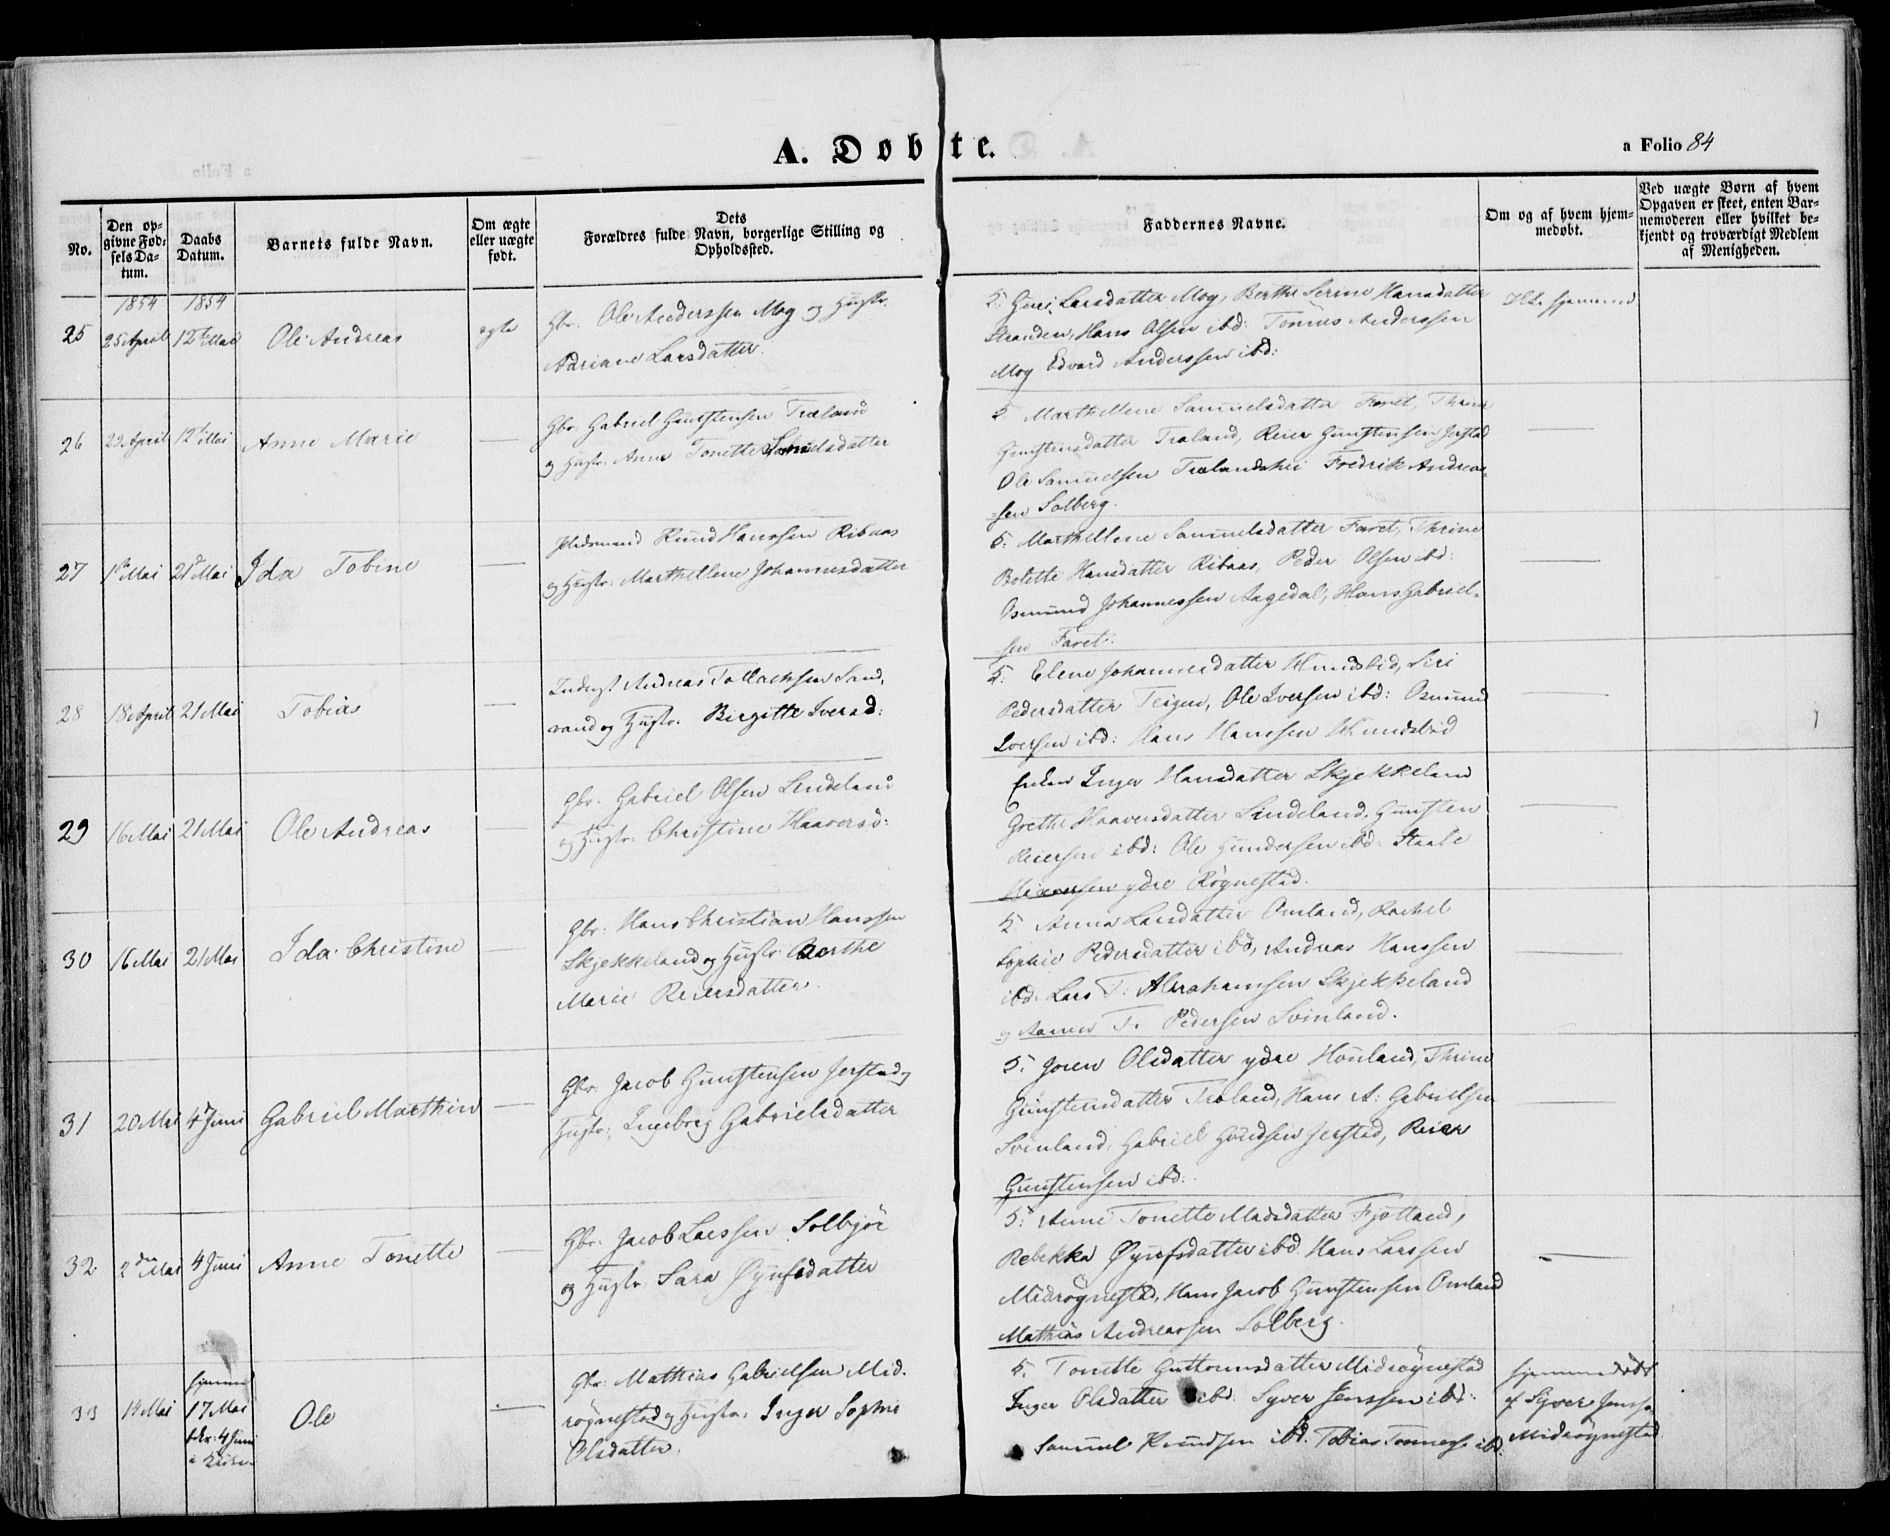 A. Døbte.
a Folio 84
No.
Den opgivne Fødsels Datum.
Daabs Datum.
Barnets fulde Navn.
Om ægte eller uægte født.
Dets Forældres fulde Navn, borgerlige Stilling og Opholdssted.
Faddernes Navne.
Om og af hvem hjemmedøbt.
Ved uægte Børn af hvem Opgaven er skeet, enten Barnemoderen eller hvilket bekjendt og troværdigt Medlem af Menigheden.
1854 1854
25 25 April 12te Mai Ole Andreas ægte
Gbr: Ole Anderssen Moy og Hustr.
Adriane Larsdatter.
5. Larsdatter Moy, Berthe Serine Hansdatter
Stranden, Hans Olsen ibd: Tønnes Anderssen
Moy Edvard Anderssen ibd:
26 29 April 12te Mai Anne Marie
Gbr: Gabriel Gunstensen Træland
og Hustr: Anne Tonette Samuelsdatter
5 Marthe Lene Samuelsdatter Faret, Thrine
Gunstensdatter Træland, Reier Gunstensen Jerstad
Ole Samuelsen Trælandshei Fredrik Andreas-
sen Solberg.
27 1ste Mai 21de Mai Ida Tobine
Hanssen Ribaas
og Hustr: Marthe Lene Johannesdatter
5: Marthe Lene Samuelsdatter Faret, Thrine
Bolette Hansdatter Ribaas, Peder Olsen ibd:
Osmund Johannessen Aagedal, Hans Gabriel-
sen Faret.
28 18 April 21 Mai Tobias
Inderst Andreas Tollachsen Sand,
vand og Hustr: Birgitte Iversd:
5: Elene Johannesdatter Siri
Pedersdatter Teigen, Ole Iversen ibd: Osmund
Iversen ibd: Hans Hanssen
29 16 Mai 21 Mai Ole Andreas
Gbr: Gabriel Olsen Lindeland
og Hustr: Christine Haaversd:
Enken Inger Hansdatter Skjekkeland
Grethe Haaversdatter Lindeland, Gunsten
Reiersen ibd: Ole Gundersen ibd: Staale
Haaversen ydre Røgnestad.
30 16 Mai 21 Mai Ida Christine
Gbr: Hans Christian Hanssen
Skjekkeland og Hustr: Berthe
Marie Reiersdatter.
5 Anna Larsdatter Omland, Rachel
Sophie Pedersdatter ibd, Andreas Hanssen
ibd: Lars T: Abrahamsen Skjekkeland
og T. Pedersen Svinland.
31 20 Mai 4de Juni Gabriel Marthin
Gbr: Jacob Gunstensen Jerstad og
Hustr: Ingeborg Gabrielsdatter
5: Joren Olsdatter ydre Houland, Thrine
Gunstensdatter Træland, Hans A: Gabrielsen
Svinland, Gabriel Jerstad, Reier
Gunstensen ibd:
32 2den Mai 4 Juni Anne Tonette
Gbr: Jacob Larssen Solbjør
og Hustr: Sara Øyufsdatter
5: Anne Tonette Madsdatter Fjotland,
Rebekka Øyufsdatter ibd, Hans Larssen
Midrøgnestad, Hans Jacob Gunstensen Omland
Mathias Andreassen Solberg.
33 14 Mai
hjemme
17 Mai
bkr: 4 Juni
i Kirken
Ole
Gbr: Mathias Gabrielsen Mid-
røgnestad og Hustr: Inger Sophie
Olsdatter.
5. Tonette Guttormsdatter Midrøgnestad
Inger Olsdatter ibd. Syver Jenssen ibd:
Samuel Knudsen ibd. Tobias ibd.
hjemmedøbt
af Syver Jenss.
Midrøgnestad